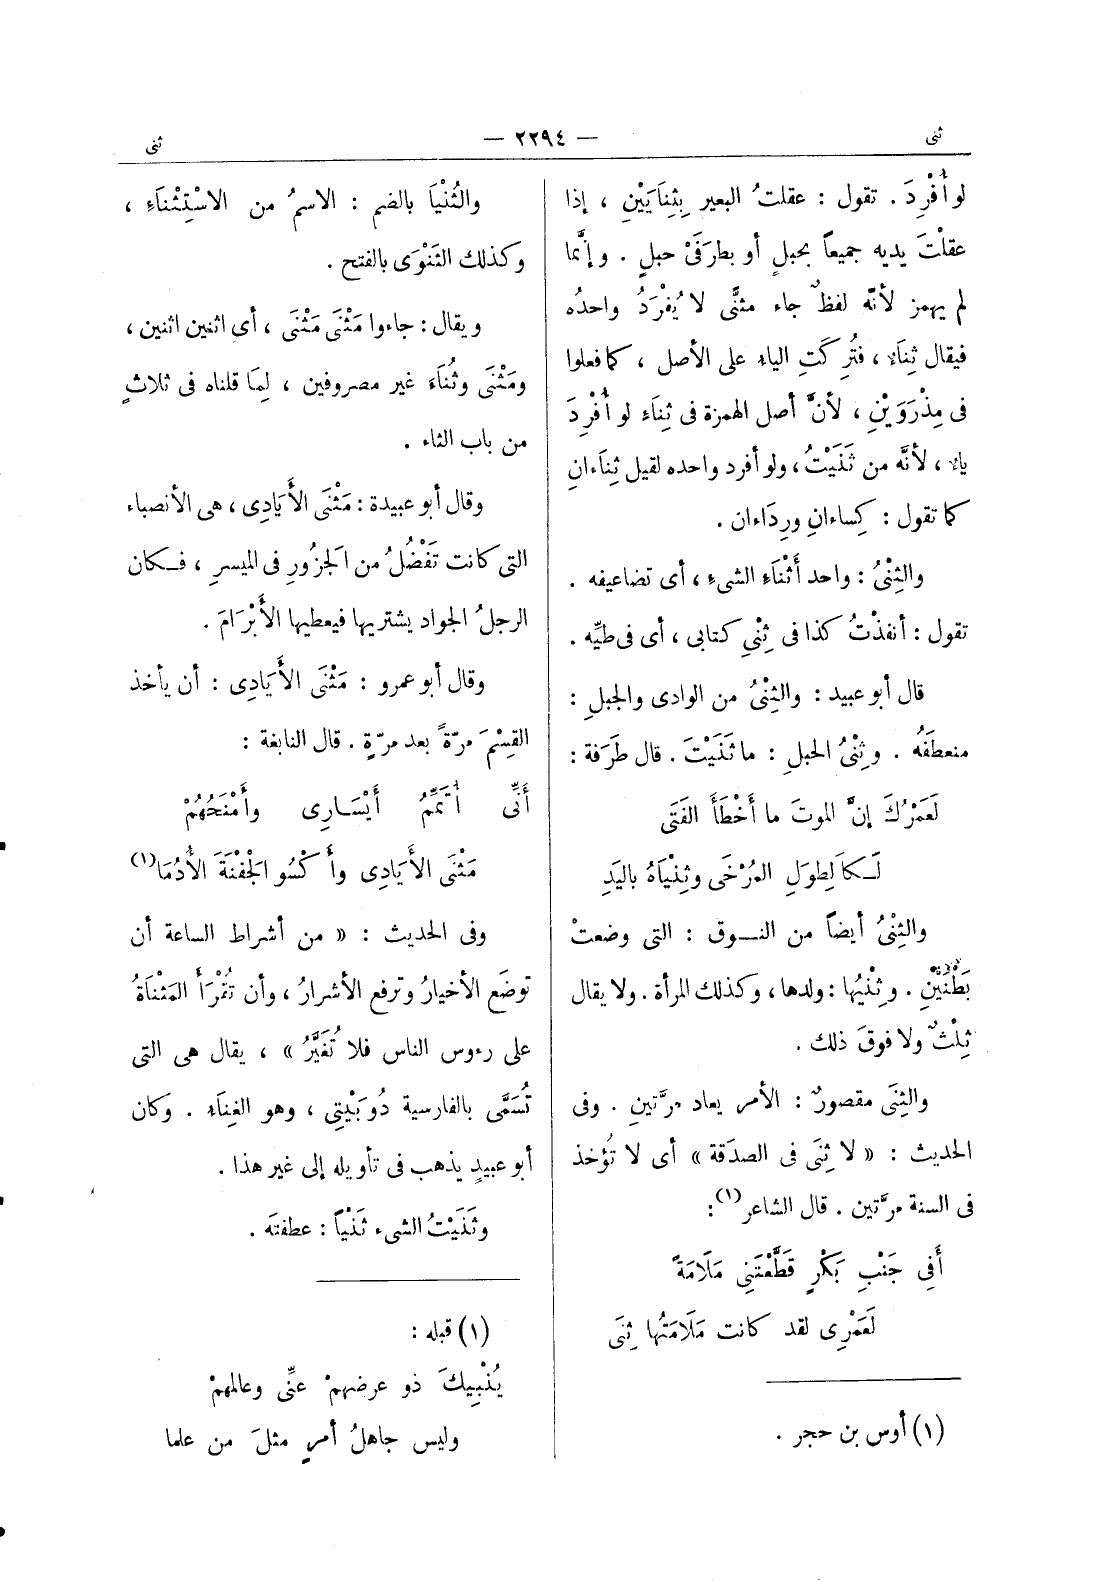 ثنى
— ٢٢٩٤ —
ثنى
لو أُفْرِدَ . تقول : عقلتُ البعير بِثِنَايَيْنِ ، إذا
عقلْتَ يديه جميعاً بحبلٍ أو بطرَفَىْ حبلٍ . وإنَّما
لم يهمز لأنَّه لفظٌ جاء مثنًّى لا يُفْرَدُ واحدُه
فيقال ثِنَاء ، فتُرِكَتِ الياء على الأصل ، كما فعلوا
فى مِذْرَوَيْنِ ، لأنَّ أصل الهمزة فى ثِنَاء لو أُفْرِدَ
ياء ، لأنَّه من ثَنَيْتُ ، ولو أفرد واحده لقيل ثِنَاءانِ
كما تقول : كِساءانِ ورِدَاءان .
والثِنْىُ : واحد أَثْنَاءِ الشىء ، أى تضاعيفه .
تقول : أنفذْتُ كذا فى ثِنْىِ كتابى ، أى فى طيِّه .
قال أبو عبيد : والثِنْىُ من الوادى والجبلِ :
منعطَفُه . وثِنْىُ الحبلِ : ما ثَنَيْتَ . قال طَرَفة :
لَعَمْرُكَ إنَّ الموتَ ما أَخْطَأَ الفَتَى
لَكَالطِوَلِ المُرْخَى وثِنْيَاهُ باليَدِ
والثِنْىُ أيضاً من النوق : التى وضعتْ
بَطْنَيْنِ . وثِنْيُها : ولدها ، وكذلك المرأة . ولا يقال
ثِلْثٌ ولا فوقَ ذلك .
والثِنَى مقصورٌ : الأمر يعاد مرَّتينِ . وفى
الحديث : « لا ثِنَى فى الصدَقة » أى لا تُؤخذ
فى السنة مرَّتين . قال الشاعر (١) :
أَفِى جَنْبِ بَكْرٍ قَطَّعَتْنِى مَلَامَةً
لَعَمْرِى لقد كانت مَلَامَتُها ثِنَى
(١) أوس بن حجر .
والثُنْيَا بالضم : الاسمُ من الاسْتِثْنَاءِ ،
وكذلك الثَنْوَى بالفتح .
ويقال : جاءوا مَثْنَى مَثْنَى ، أى اثنين اثنين ،
ومَثْنَى وثُنَاءَ غير مصروفين ، لِمَا قلناه فى ثلاثٍ
من باب الثاء .
وقال أبو عبيدة : مَثْنَى الأَيَادِى ، هى الأنصباء
التى كانت تَفْضُلُ من الجَزُورِ فى الميسرِ ، فكان
الرجلُ الجواد يشتريها فيعطيها الأَبْرَامَ .
وقال أبو عمرو : مَثْنَى الأَيَادِى : أن يأخذ
القِسْمَ مرّةً بعد مرّةٍ . قال النابغة :
أَنِّى أُتَمِّمُ أَيْسَارِى وأَمْنَحُهُمْ
مَثْنَى الأَيَادِى وأَكْسُو الجَفْنَةَ الأُدُمَا (١)
وفى الحديث : « من أشراط الساعة أن
توضَع الأخيارُ وترفع الأشرارُ ، وأن تُقْرَأَ المَثْنَاةُ
على رءوس الناس فلا تُغَيَّرُ » ، يقال هى التى
تُسَمَّى بالفارسية دُوبَيْتِى ، وهو الغِنَاء . وكان
أبو عبيدٍ يذهب فى تأويله إلى غير هذا .
وثَنَيْتُ الشىء ثَنْياً : عطفتَه .
(١) قبله :
يُنْبِيكَ ذو عرضهمْ عنِّى وعالمهمْ
وليس جاهلُ أمرٍ مثلَ من علما